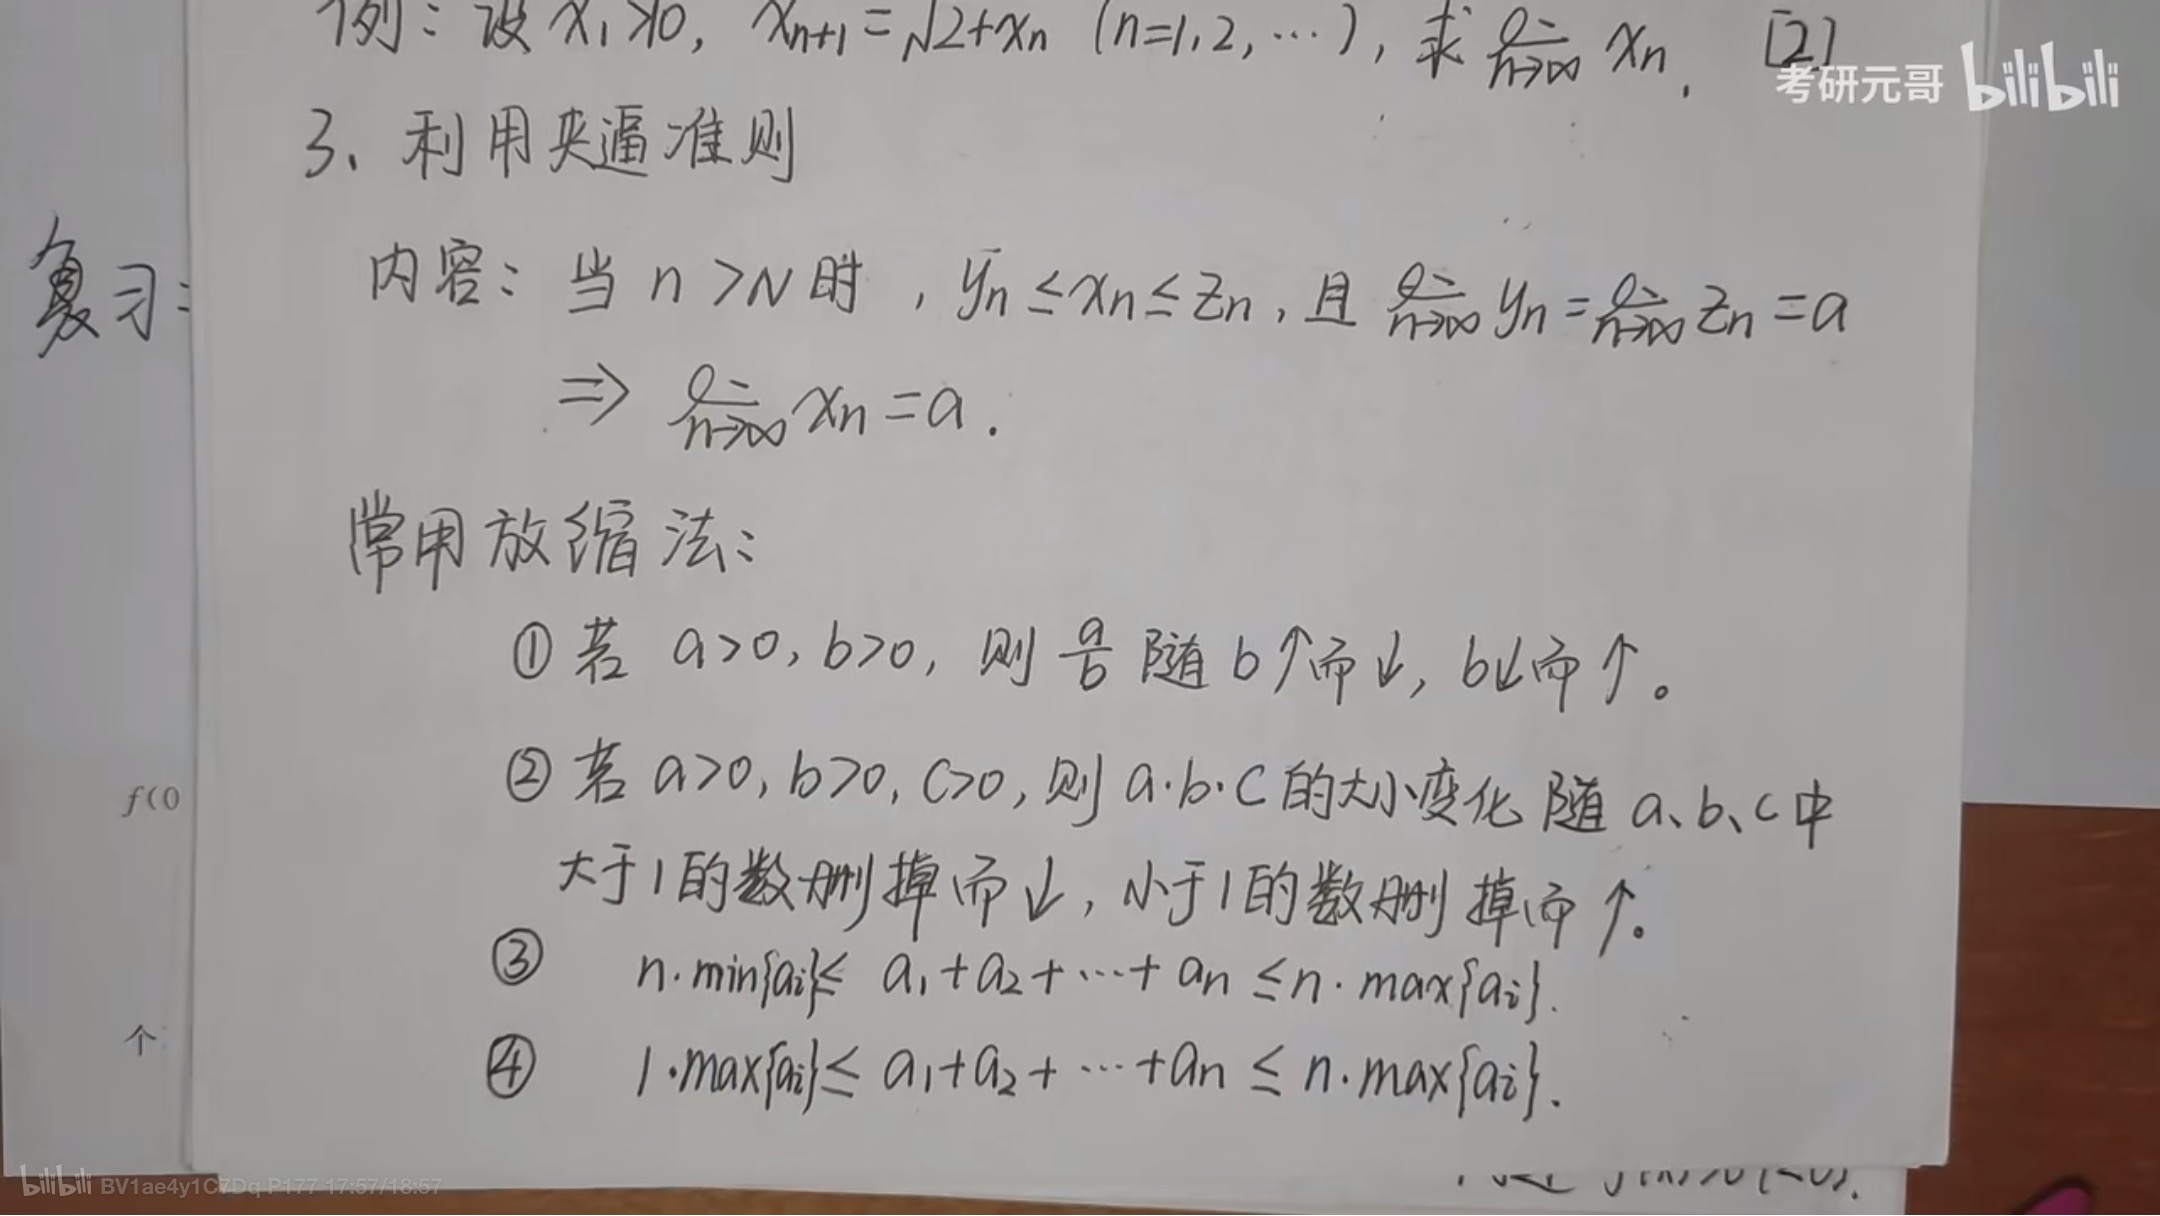 例：设 x₁>0, xₙ₊₁=√2+xₙ (n=1,2,…), 求 lim n→∞ xₙ. [2]
考研元哥 bilibili
3、利用夹逼准则
复习：
内容：当 n>N 时, yₙ≤xₙ≤zₙ, 且 lim n→∞ yₙ = lim n→∞ zₙ = a
⇒ lim n→∞ xₙ = a.
常用放缩法：
① 若 a>0, b>0, 则 a/b 随 b↑而↓, b↓而↑。
② 若 a>0, b>0, c>0, 则 a·b·c 的大小变化 随 a、b、c 中
f(0
大于1的数删掉而↓, 小于1的数删掉而↑。
③ n·min{aᵢ}≤ a₁+a₂+…+aₙ ≤n·max{aᵢ}.
个
④ 1·max{aᵢ}≤ a₁+a₂+…+aₙ ≤ n·max{aᵢ}.
bilibili BV1ae4y1C7Dq P177 17:57/18:57